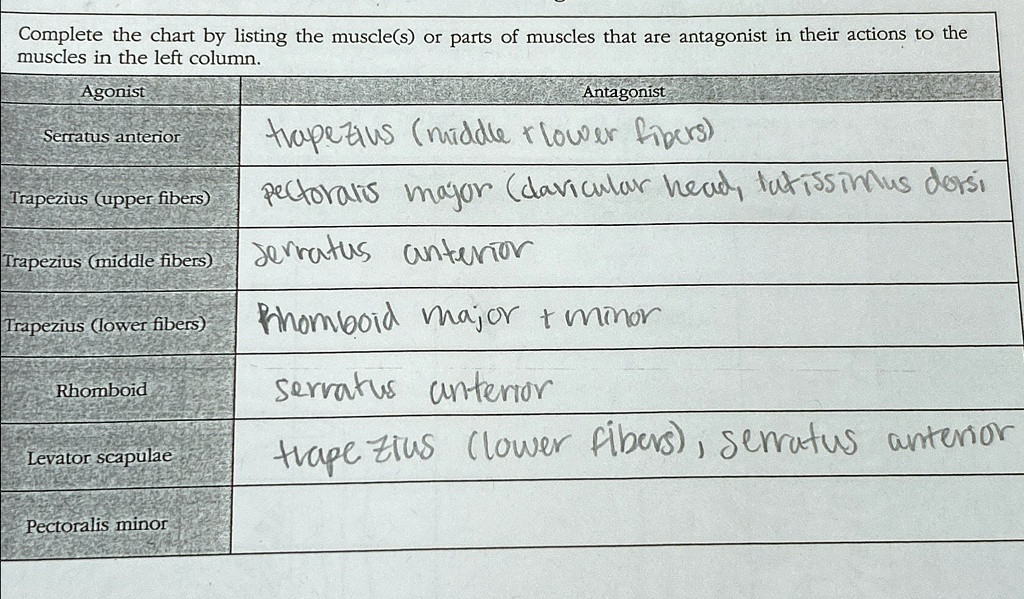 Complete the chart by listing the muscle(s) or parts of muscles that are antagonist in their actions to the
muscles in the left column.
Agonist Antagonist
Serratus anterior trapezius (middle + lower fibers)
Trapezius (upper fibers) pectoralis major (clavicular head, latissimus dorsi
Trapezius (middle fibers) serratus anterior
Trapezius (lower fibers) Rhomboid major + minor
Rhomboid serratus anterior
Levator scapulae trapezius (lower fibers), serratus anterior
Pectoralis minor